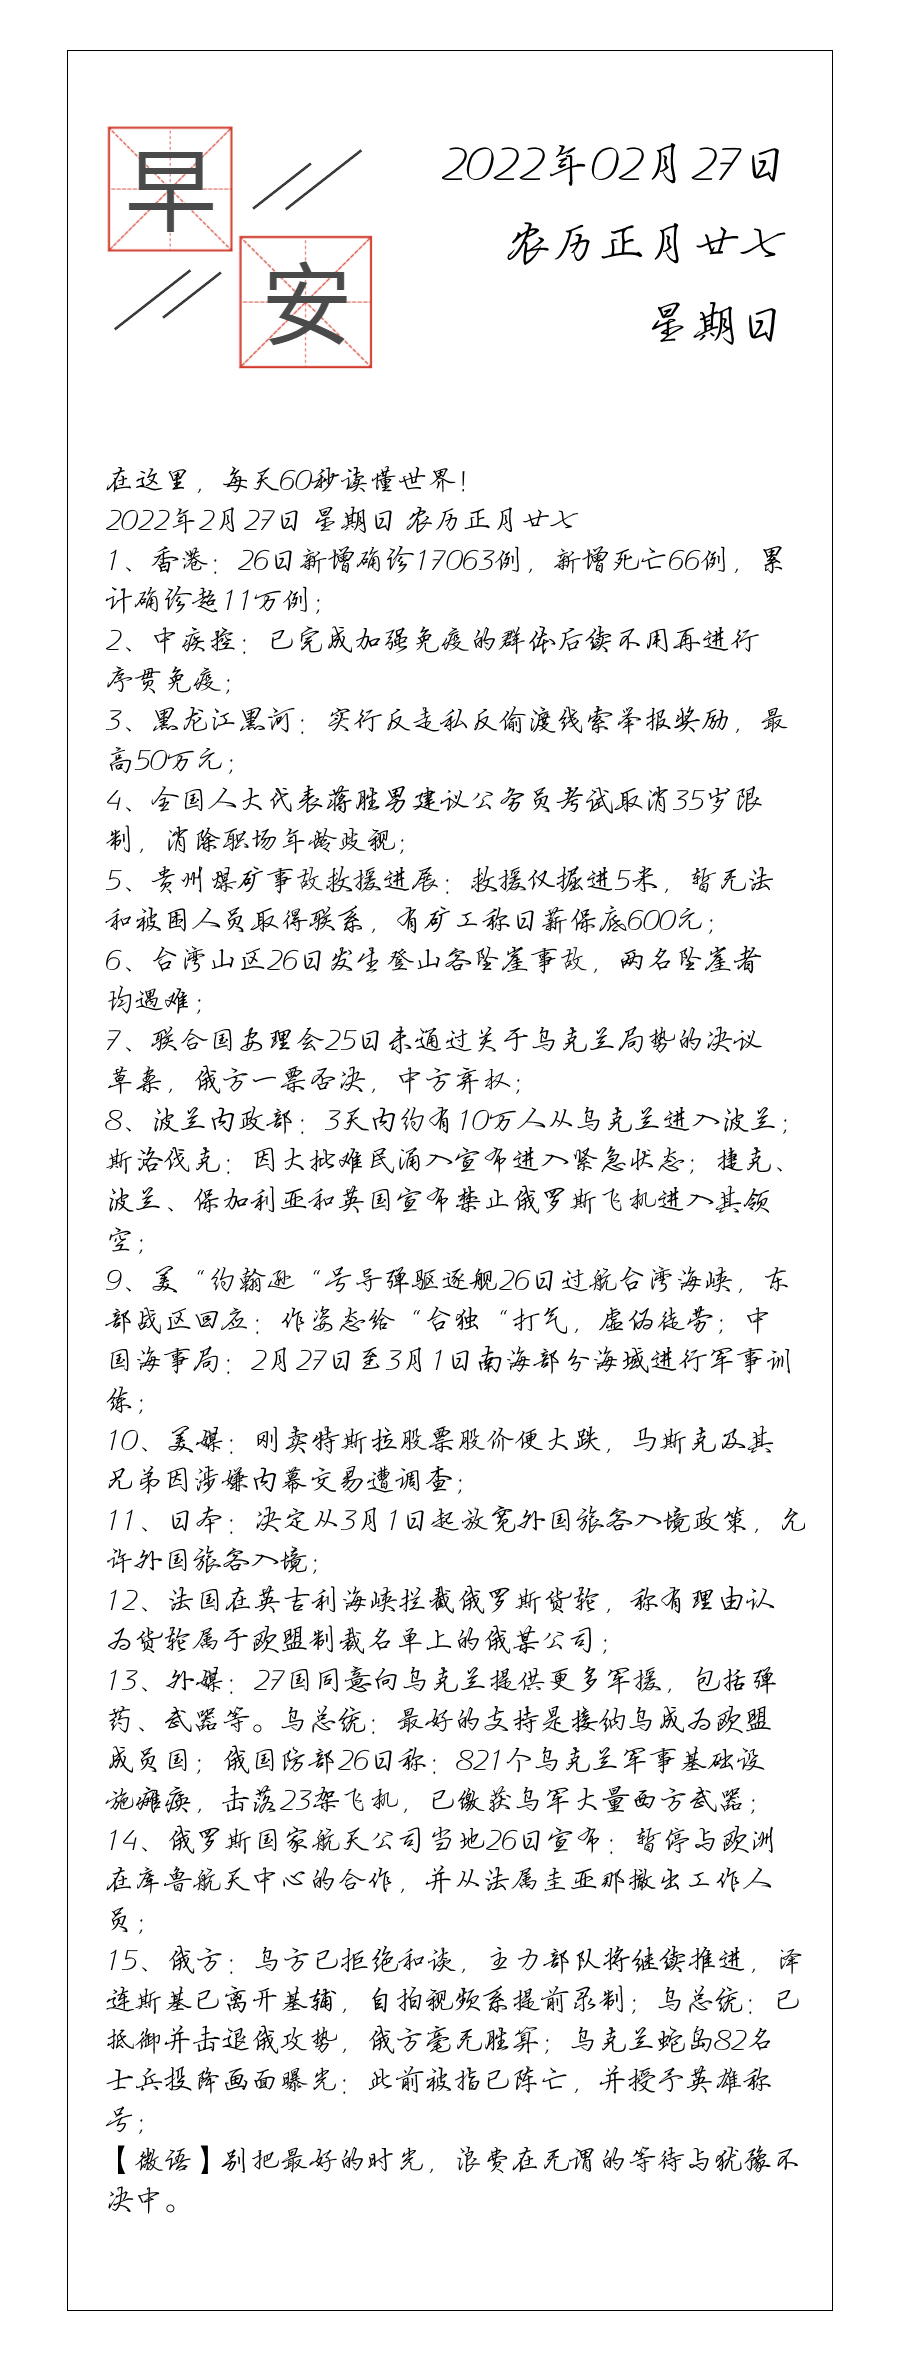 早
安
2022年02月27日
农历正月廿七
星期日
在这里，每天60秒读懂世界！
2022年2月27日 星期日 农历正月廿七
1、香港：26日新增确诊17063例，新增死亡66例，累
计确诊超11万例；
2、中疾控：已完成加强免疫的群体后续不用再进行
序贯免疫；
3、黑龙江黑河：实行反走私反偷渡线索举报奖励，最
高50万元；
4、全国人大代表蒋胜男建议公务员考试取消35岁限
制，消除职场年龄歧视；
5、贵州煤矿事故救援进展：救援仅掘进5米，暂无法
和被困人员取得联系，有矿工称日薪保底600元；
6、台湾山区26日发生登山客坠崖事故，两名坠崖者
均遇难；
7、联合国安理会25日未通过关于乌克兰局势的决议
草案，俄方一票否决，中方弃权；
8、波兰内政部：3天内约有10万人从乌克兰进入波兰；
斯洛伐克：因大批难民涌入宣布进入紧急状态；捷克、
波兰、保加利亚和英国宣布禁止俄罗斯飞机进入其领
空；
9、美“约翰逊“号导弹驱逐舰26日过航台湾海峡，东
部战区回应：作姿态给“台独“打气，虚伪徒劳；中
国海事局：2月27日至3月1日南海部分海域进行军事训
练；
10、美媒：刚卖特斯拉股票股价便大跌，马斯克及其
兄弟因涉嫌内幕交易遭调查；
11、日本：决定从3月1日起放宽外国旅客入境政策，允
许外国旅客入境；
12、法国在英吉利海峡拦截俄罗斯货轮，称有理由认
为货轮属于欧盟制裁名单上的俄某公司；
13、外媒：27国同意向乌克兰提供更多军援，包括弹
药、武器等。乌总统：最好的支持是接纳乌成为欧盟
成员国；俄国防部26日称：821个乌克兰军事基础设
施瘫痪，击落23架飞机，已缴获乌军大量西方武器；
14、俄罗斯国家航天公司当地26日宣布：暂停与欧洲
在库鲁航天中心的合作，并从法属圭亚那撤出工作人
员；
15、俄方：乌方已拒绝和谈，主力部队将继续推进，泽
连斯基已离开基辅，自拍视频系提前录制；乌总统：已
抵御并击退俄攻势，俄方毫无胜算；乌克兰蛇岛82名
士兵投降画面曝光：此前被指已阵亡，并授予英雄称
号；
【微语】别把最好的时光，浪费在无谓的等待与犹豫不
决中。